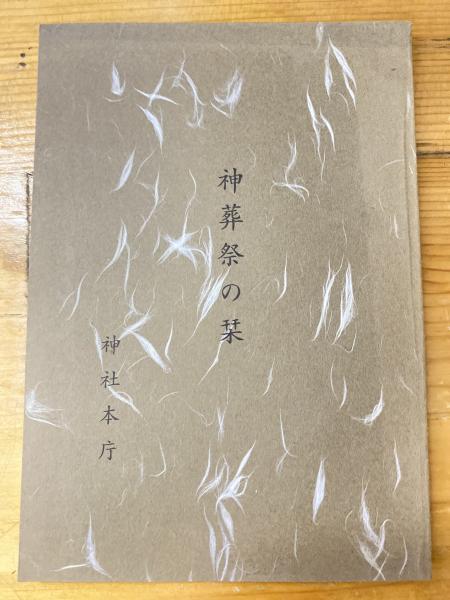 神葬祭の栞
神社本庁